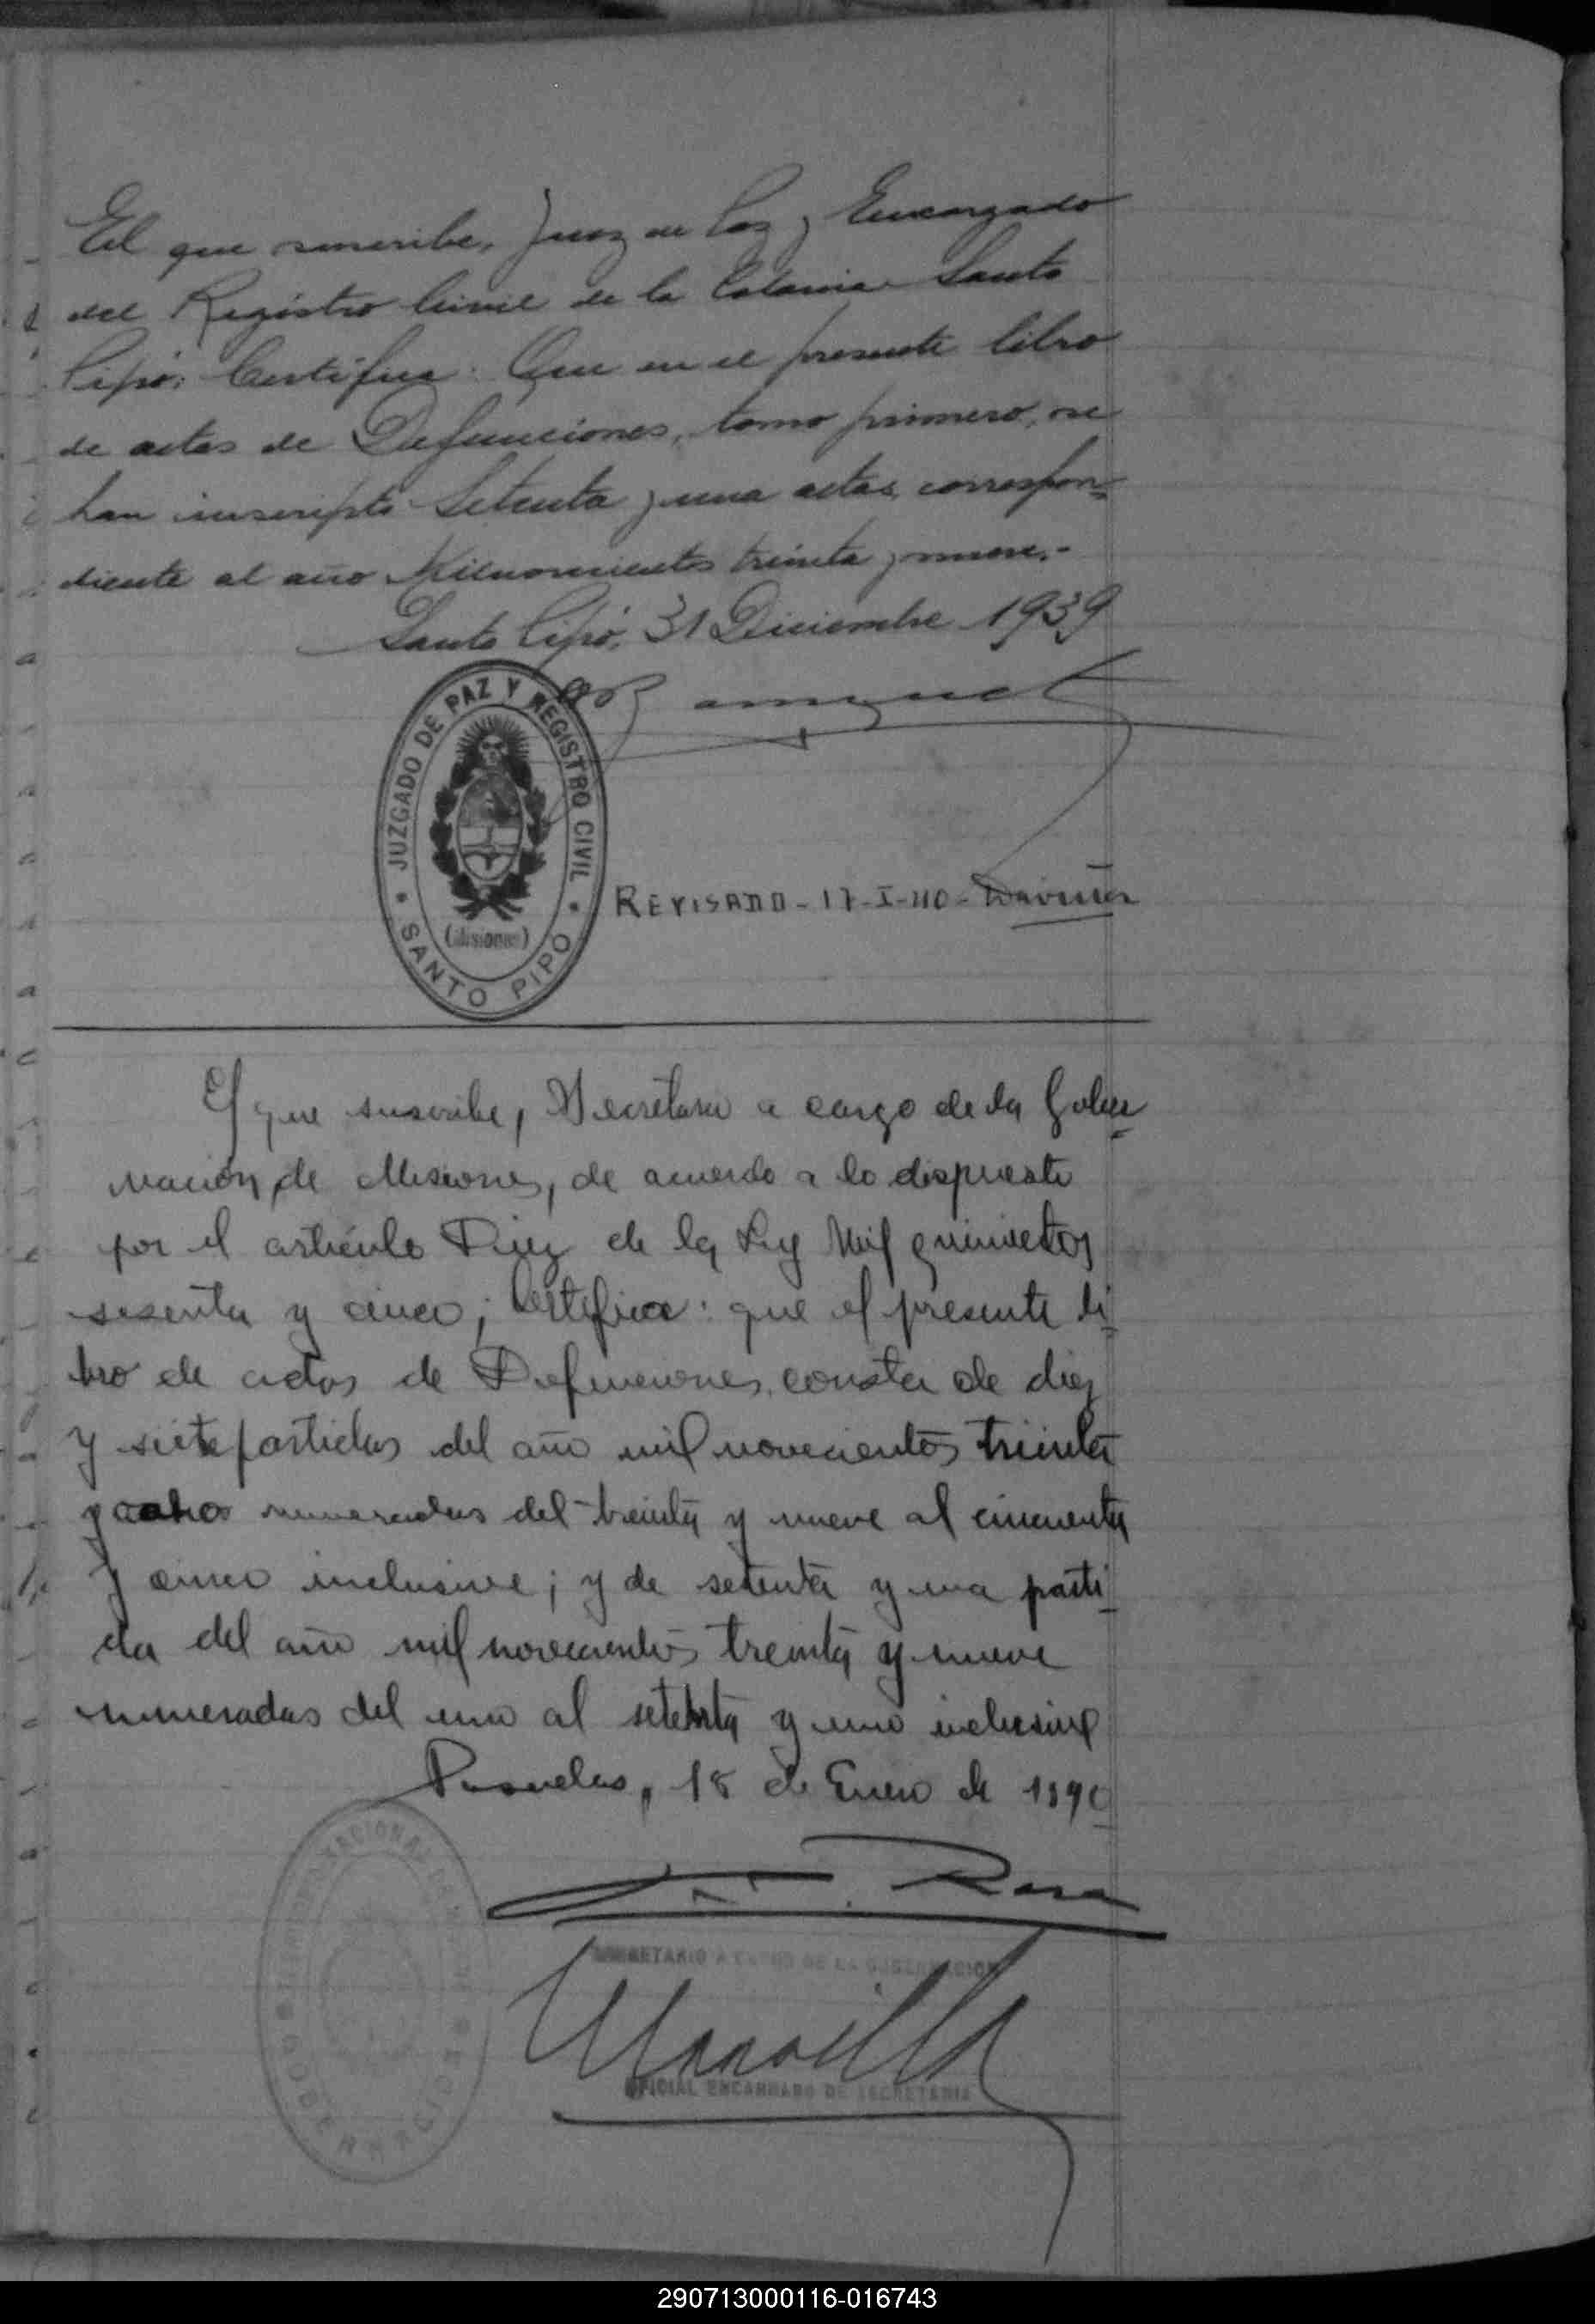 El que suscribe, Juez de Paz y Encargado
del Registro Civil de la Colonia Santo
Pipó; Certifica: Que en el presente libro
de actas de Defunciones, tomo primero, se
han inscripto Setenta y una actas, correspon-
diente al año Milnovecientos treinta y nueve.-
Santo Pipó, 31 Diciembre 1939
JUZGADO DE PAZ Y REGISTRO CIVIL
(Misiones)
SANTO PIPÓ
REVISADO - 17-I-40 -
El que suscribe, Secretario a cargo de la Gober-
nación de Misiones, de acuerdo a lo dispuesto
por el artículo Diez de la Ley Mil quinientos
sesenta y cinco; Certifica: que el presente li-
bro de actas de Defunciones, consta de diez
y siete partidas del año mil novecientos treinta
y ocho numeradas del treinta y nueve al cincuenta
y cinco inclusive; y de setenta y una parti-
da del año mil novecientos treinta y nueve
numeradas del uno al setenta y uno inclusive
Posadas, 18 de Enero de 1940
SECRETARIO A CARGO DE LA GOBERNACION
OFICIAL ENCARGADO DE SECRETARIA
GOBERNACION
290713000116-016743